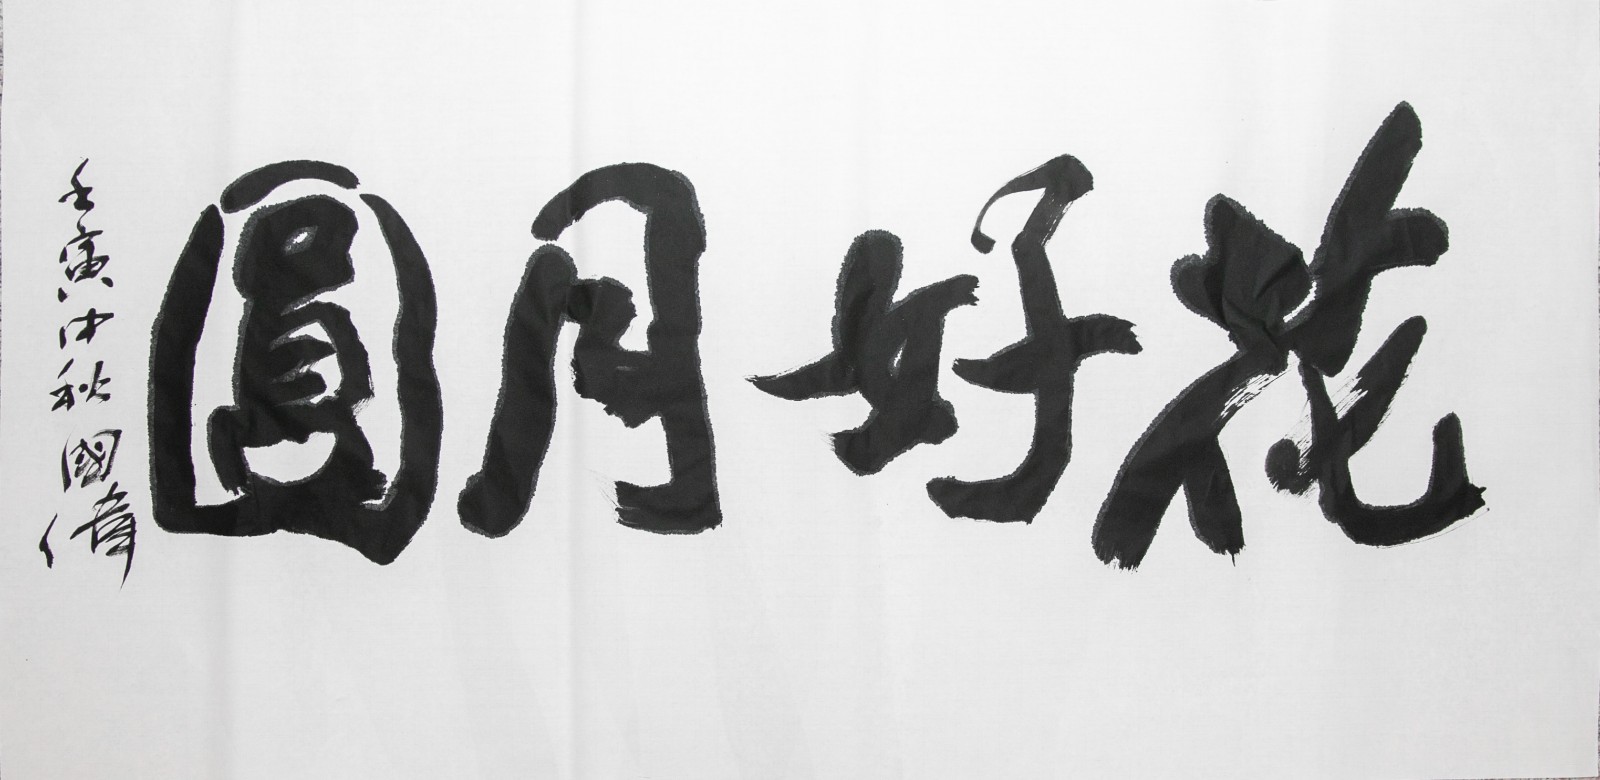 花好月圓
壬寅中秋國偉